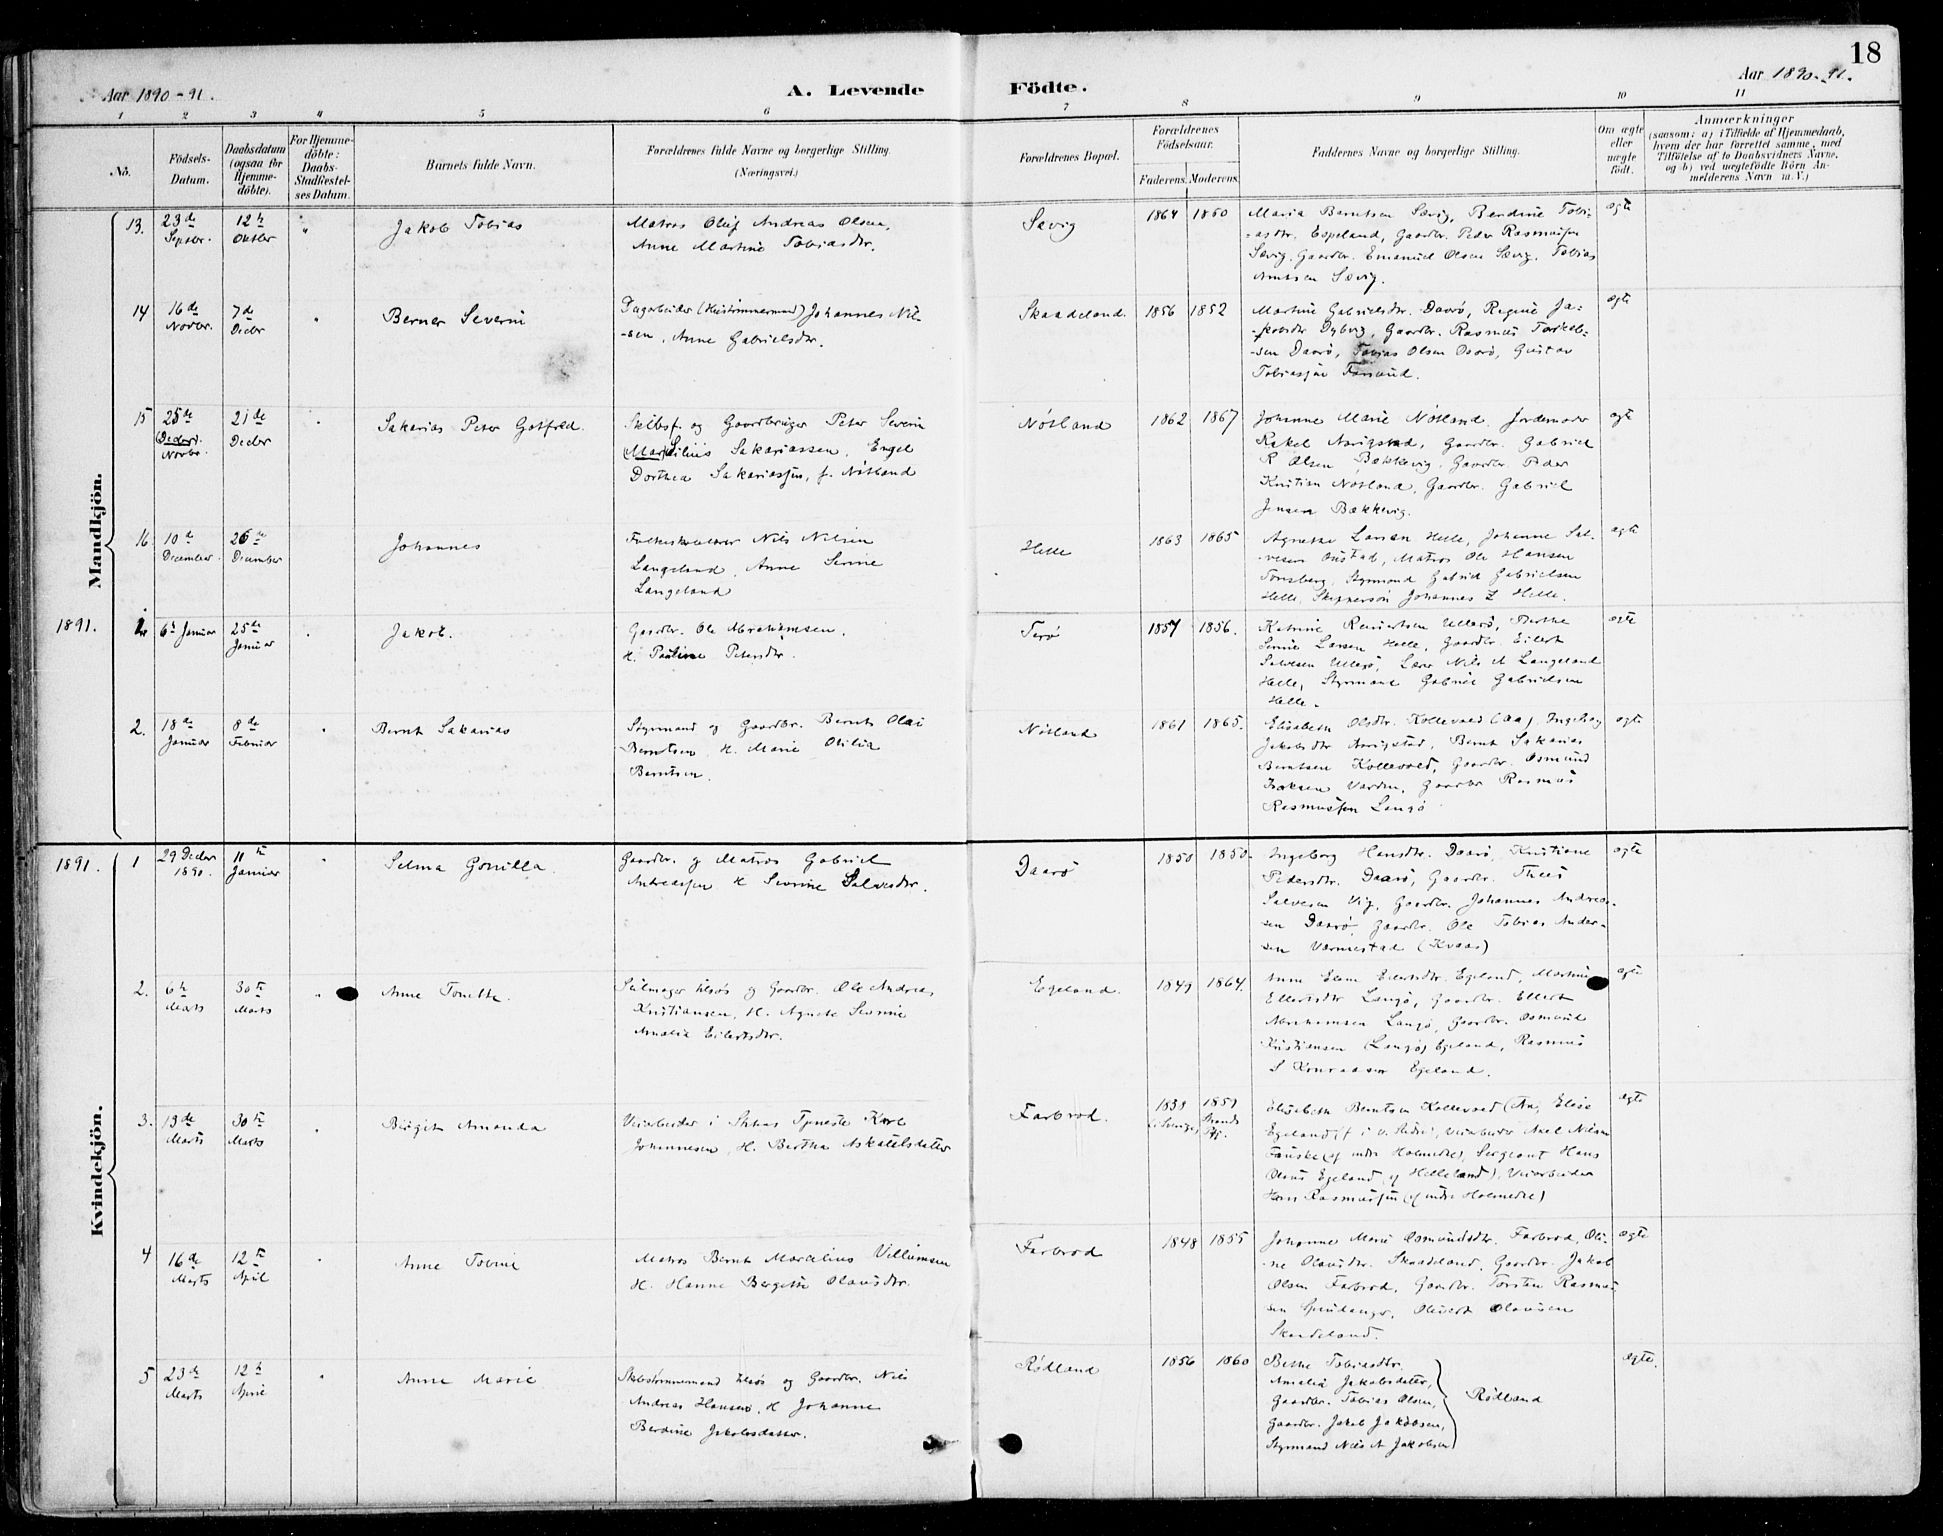 18
Aar 1890-91.
A. Levende
Födte.
Aar 1890-91.
1 2 3 4 5 6 7 8 9 10 11
No.
Födsels-
Datum.
Daabsdatum
(ogsaa for
Hjemme-
döbte).
For Hjemme-
döbte:
Daabs-
Stadfæstel-
ses Datum.
Barnets fulde Navn.
Forældrenes fulde Navne og borgerlige Stilling.
(Næringsvei.)
Forældrenes Bopæl.
Forældrenes
Födselsaar.
Faderens. Moderens.
Faddernes Navne og borgerlige Stilling.
Om ægte
eller
uægte
födt.
Anmærkninger
(saasom: a) i Tilfælde af Hjemmedaab,
hvem der har forrettet samme, med
Tilföielse af to Daabsvidners Navne,
og b) ved uægtefödte Börn An-
melderens Navn m. V.)
Mandkjön.
13.
23de
Septbr.
12te
Oktbr
Jakob Tobias
Matros Oluf Andreas Olsen,
Anne Martine Tobiasdtr.
Sævig
1864 1860
Maria Berntsen Sævig, Berdine Tobi-
-asdtr. Espeland, Gaardbr. Peder Rasmussen
Sævig, Gaardbr. Emanuel Olsen Sævig, Tobias
Sævig.
ægte
14
16de
Novbr.
7de
Decbr
Berner Severin
Dagarbeider (Hustømmermand) Johannes Nil-
-sen, Anne Gabrielsdtr.
Skaadeland.
1856 1852
Martine Gabrielsdtr. Daarø, Regine Ja-
-kobsdtr Dyberg, Gaardbr. Rasmus Torkels-
-sen Daarø, Tobias Olsen Daarø, Gustav
Tobiassen
ægte
15
25de
(Decbr).
Novbr.
21de
Decbr
Sakarias Peter Gotfred.
Skibsf. og Gaardbruger Peter Severin
(Mar)Silius Sakariassen, Engel
Dorthea Sakariassen, f. Nötland
Nötland
1862 1867
Johanne Marie Nötland, Jordemoder
Rakel Aarigstad, Gaardbr. Gabriel
R Olsen Bækkevig, Gaardbr. Peder
Kristian Nötland, Gaardbr. Gabriel
Jensen Bækkevig.
ægte
16.
10de
December.
26de
December
Johannes
Folkeskolelærer Nils Nilsen
Langeland, Anne Serine
Langeland
Helle
1863 1865
Agnethe Larsen Helle, Johanne Sal-
-vesen Matros Ole Hansen
Tonsberg, Styrmand Gabriel Gabrielsen
Helle, Skippersøn Johannes L Helle.
ægte
1891.
1.
6te Januar
25de
Januar
Jakob.
Gaardbr. Ole Abrahamsen.
H. Pauline Petersdtr.
Terö
1857 1856.
Katrine Reinertsen Ullerø, Berthe
Serine Larsen Helle, Gaardbr. Eilert
Salvesen Ullerø, Lærer Nils N Langeland
Helle, Styrmand Gabriel Gabrielsen
Helle.
ægte
2.
18de
Januar
8de
Februar
Bernt Sakarias
Styrmand og Gaardbr. Bernt Olai
Berntsen, H. Marie Otilia
Berntsen.
Nötland
1861 1865.
Elisabeth Olsdtr. Kollevold (Aa), Ingeborg
Jakobsdtr Aarigstad, Bernt Sakarias
Berntsen Kollevold, Gaardbr. Osmund
Isaksen Varden, Gaardbr Rasmus
Rasmussen Langø
ægte
Kvindekjön.
1891.
1
29 Decbr
1890.
11te
Januar
Selma Gonilla.
Gaardbr. og Matros Gabriel
Andreassen H Severine Salvesdtr.
Daarø
1850 1850.
Ingeborg Hansdtr. Daarø, Kristiane
Pedersdtr. Daarø, Gaardbr. Theis
Salvesen Vig, Gaardbr. Johannes Andreas-
sen Daarø, Gaardbr. Ole Tobias Ander-
sen Værmestad (Kvaas)
ægte
2.
6te
Marts
30te
Marts
Anne Tonette.
Seilmager tilsøs og Gaardbr. Ole Andreas
Kristiansen, H. Agnete Severine
Amalia Eilertsdtr.
Egeland.
1849 1864.
Anne Elene Eilertsdtr. Egeland, Martine
Ellertsdtr Langø, Gaardbr. Ellert
Abrahamsen Langø, Gaardbr. Osmund
Kristiansen (Langø) Egeland, Rasmus
S Konradsen Egeland.
ægte
3.
13de
Marts
30te
Marts
Birgit Amanda
Veiarbeider i Sthas Tjeneste Karl
Johannesen, H. Bertha Askjelsdatter
Farbrod.
1838
(i Sverige)
1851
Pgj.
Elisabeth Berntsen Kollevold (Aa, Elise
Egeland (f i V. Veiarbeider Axel Nilsen
Fauske (af indre Holmedal), Sergeant Hans
Olsen Egeland (af Helleland), Veiarbeider
Hans Rasmussen (af indre Holmedal)
ægte
4
16de
Marts
12te
April
Anne Tobine
Matros Bernt Marcelius Villumsen
H. Hanne Bergitte Olavisdtr.
Farbrod
1848 1855
Johanne Marie Osmundsdtr. Farbrod, Oli-
-ne Olavsdtr. Skaadeland, Gaardbr. Jakob
Olsen Farbrod, Gaardbr. Torsten Rasmus-
sen Spindanger, Oluert Olavsen
Skaadeland.
ægte
5
23de
Marts
12te
April
Anne Marie
Skibstømmermand tilsøs og Gaardbr. Nils
Andreas Hansen, H Johanne
Berdine Jakobsdatter.
Rødland
1856 1860
Berthe Tobiasdtr.
Amalia Jakobsdatter,
Gaardbr. Tobias Olsen,
Gaardbr. Jakob Jakobsen,
Styrmand Nils A Jakobsen
Rødland
ægte.